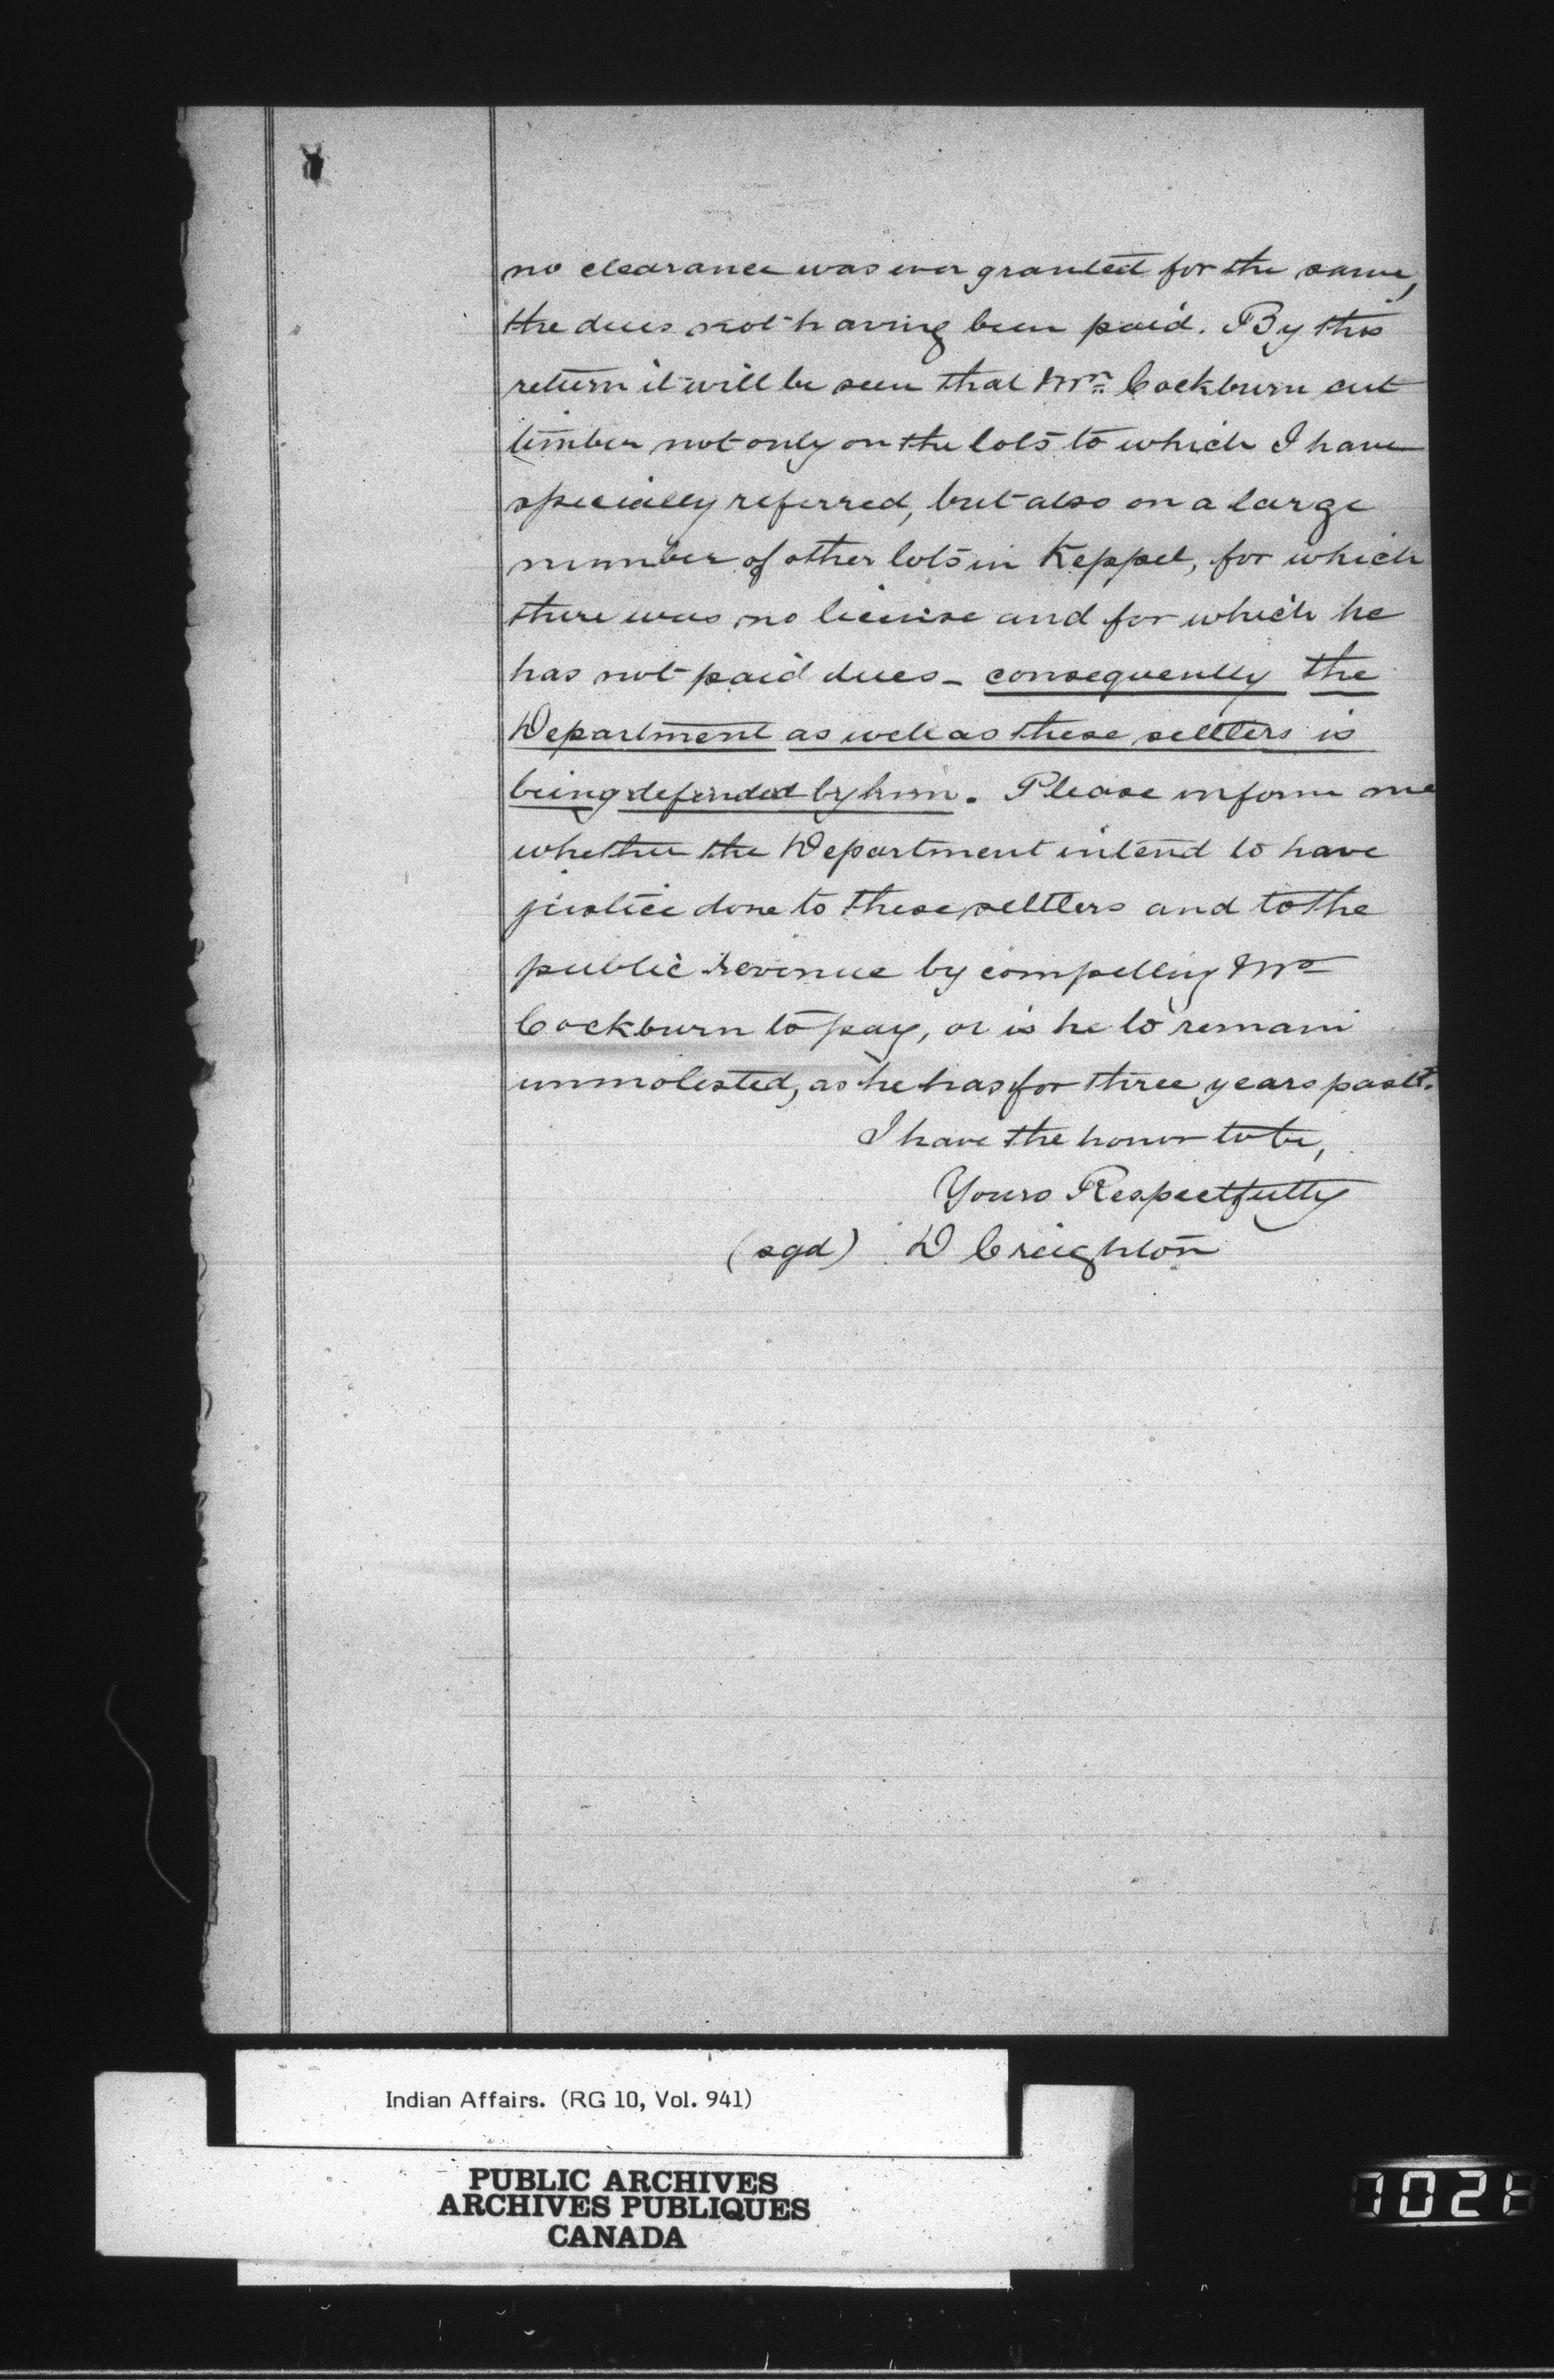 no clearance was ever granted for the same,
the dues not having been paid. By this
return it will be seen that Mr. Cockburn cut
timber not only on the lots to which I have
specially referred, but also on a large
number of other lots in Keppel, for which
there was no license and for which he
has not paid dues - consequently the
Department as well as these settlers is
being defended by him. Please inform me
whether the Department intend to have
justice done to these settlers and to the
public revenue by compelling Mr
Cockburn to pay, or is he to remain
unmolested, as he has for three years past?
I have the honor to be,
Yours Respectfully
(sgd) D Creighton
Indian Affairs. (RG 10, Vol. 941)
PUBLIC ARCHIVES
ARCHIVES PUBLIQUES
CANADA